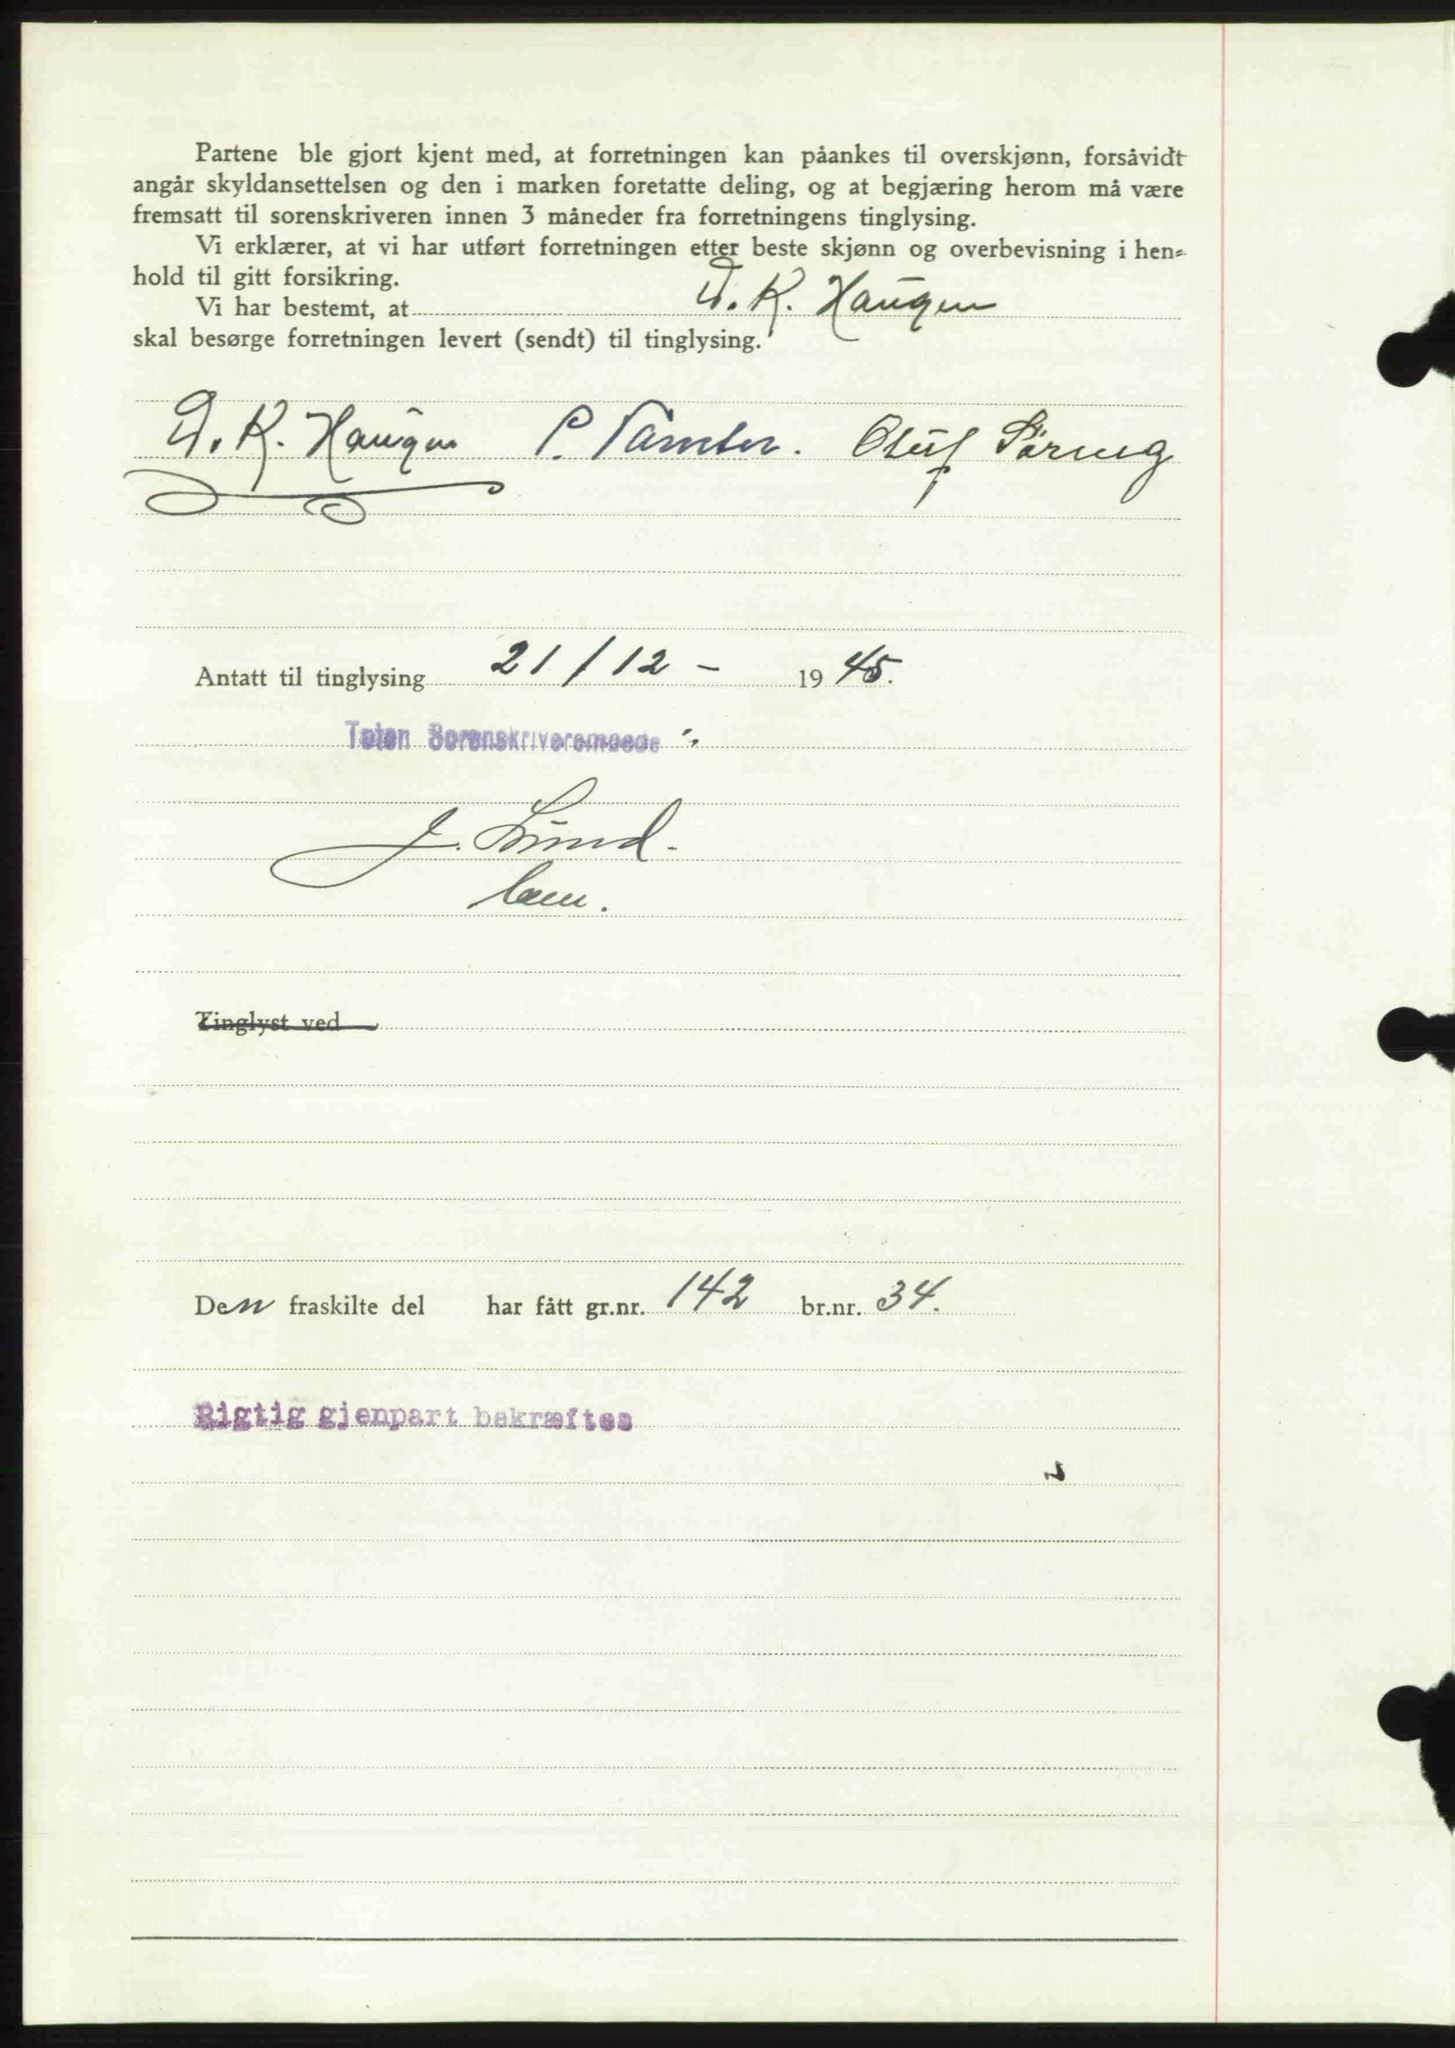 Partene ble gjort kjent med, at forretningen kan påankes til overskjønn, forsåvidt
angår skyldansettelsen og den i marken foretatte deling, og at begjæring herom må være
fremsatt til sorenskriveren innen 3 måneder fra forretningens tinglysing.
Vi erklærer, at vi har utført forretningen etter beste skjønn og overbevisning i hen-
hold til gitt forsikring.
Vi har bestemt, at D. K. Haugen
skal besørge forretningen levert (sendt) til tinglysing.
D. K. Haugen P. Olaf
Antatt til tinglysing 21/12 - 1945.
Toten Sorenskriverembede
J. Lund.
Tinglyst ved
Den fraskilte del har fått gr.nr. 142 br.nr. 34.
Rigtig gjenpart bekræftes